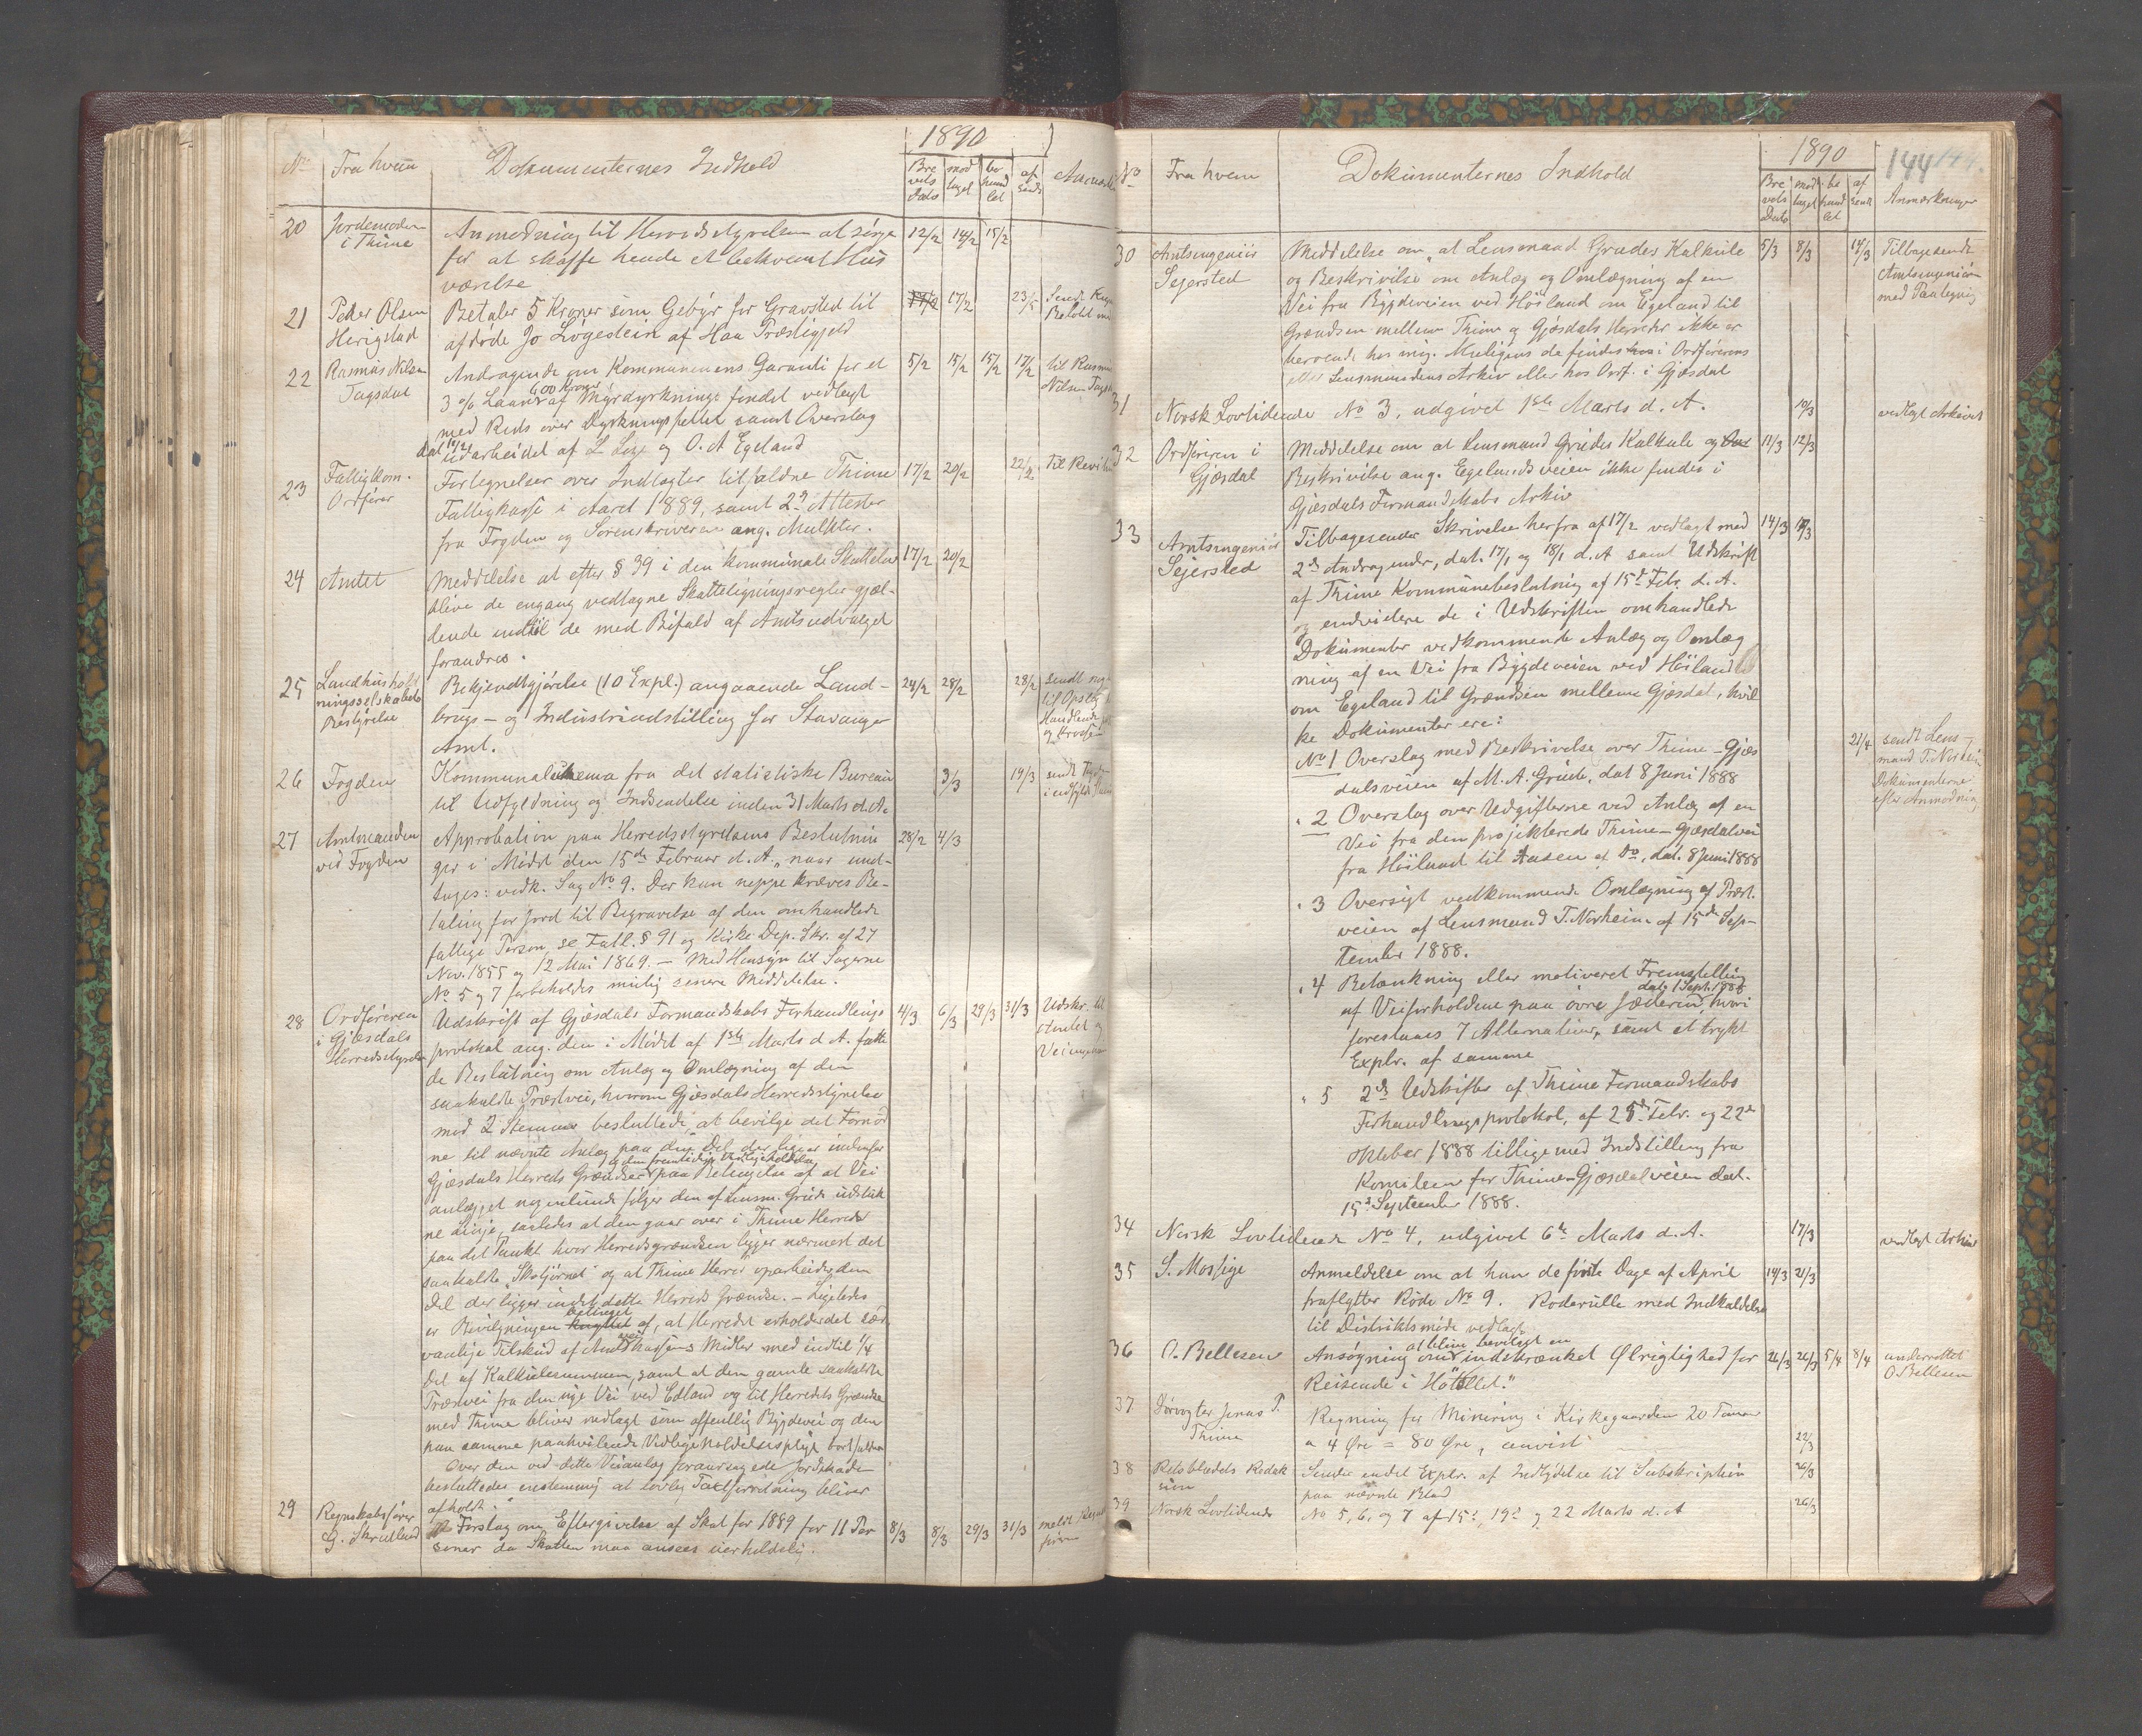 1890
No Fra hvem Dokumenternes Indhold Brevets Dato modtaget behandlet afsendt
20 Jordemoderen i Thime
Anmodning til Herredsstyrelsen at sørge 12/2 14/2 15/2
for at skaffe hende et bekvemt Hus
værelse
21 Peder Olsen Herigstad
Betaler 5 Kroner som Gebyr for Gravsted til 17/2 23/5 Sendt
afdøde Jo Løgedein af Haa Præstigjeld
22 Rasmus Nilsen Tagsdal
Andragende om Kommunenens Garanti for et 5/2 15/2 15/2 17/2 til Rasmus
3 % Laan 600 Kroner af Myrdyrkningsfondet vedlagt Nilsen
med Rids over Dyrkningsfeltet samt Overslag
dat 11/2 udarbeidet af L Lye og O. A Egeland
23 Fattigkom. Ordfører
Fortegnelser over Indtægter tilfaldne Thime 17/2 20/2 22/2 til
Fattigkasse i Aaret 1889, samt 2de Attester
fra Fogden og Sorenskriveren ang. Mulkter.
24 Amtet
Meddelelse at efter § 39 i den kommunale Skattelov 17/2 20/2
blive de engang vedtagne Skatteligningsregler gjæl-
dende indtil de med Bifald af Amtsudvalget
forandres.
25 Landhusholdningsselskabets Bestyrelse
Bekjendtgjørelse (10 Expl.) angaaende Land- 24/2 28/2 28/2 sendt
brugs- og Industriudstilling for Stavanger til Opslag
Amt. Handlende
26 Fogden
Kommunalskema fra det statistiske Bureau 3/3 19/3 sendt
til Udfyldning og Indsendelse inden 31 Marts d. A.
27 Amtmanden ved Fogden
Approbation paa Herredsstyrelsens Beslutnin 28/2 4/3
ger i Mødet den 15de Februar d. A., naar und-
tages: vedk. Sag No 9. Der kan neppe kræves Be-
taling for Jord til Begravelse af den omhandlede
fattige Person, se Fattl. § 91 og Kirke Dep. Skr. af 27
Nov. 1855 og 12 Mai 1869. — Med Hensyn til Sagerne
No 5 og 7 forbeholdes mulig senere Meddelelse.
28 Ordføreren i Gjæsdals Herredsstyrelse
Udskrift af Gjæsdals Formandskabs Forhandlings 4/3 6/3 29/3 31/3 Udskr. til
protokol ang. den i Mødet af 1ste Marts d A. fatte Amtet og
de Beslutning om Anlæg og Omlægning af den
saakaldte Præstvei, hvorom Gjæsdals Herredsstyrelse
med 2 Stemmer besluttede, at bevilge det Fornød
ne til nævnte Anlæg paa den Del der ligger indenfor
og dens fremtidige Vedligeholdelse
Gjæsdals Herreds Grændser paa Betingelse af at Vei
anlægget nogenlunde følger den af Lensm. Grude udstuk
ne Linje, saaledes at den gaar over i Thime Herred
paa det Punkt hvor Herredsgrændsen ligger nærmest det
saakaldte „Skotjørnet" og at Thime Herred oparbeider den
Del der ligger indtil dette Herreds Grændse. — Ligeledes
er Bevilgningen knyttet betinget af, at Herredet erholder det sæd
vanlige Tilskud af Amtsveikassens Midler med indtil 1/4
Del af Kalkulesummen, samt at den gamle saakaldte
Præstvei fra den nye Vei ved Edland og til Herredets Grændse
med Thime bliver nedlagt som offentlig Bygdevei og den
paa samme paahvilende Vedligeholdelsespligt bortfalden
Over den ved dette Veianlæg foraarsagede Jordskade
besluttedes enstemmig at lovlig Taxtforretning bliver
afholdt."
29 Regnskabsfører G. Skrudland
Forslag om Eftergivelse af Skat for 1889 for 11 Per 8/3 8/3 29/3 31/3 meldt
soner da Skatten maa ansees uerholdelig.
1890 144 144
No Fra hvem Dokumenternes Indhold Brevets Dato modtaget behandlet afsendt Anmærkninger
30 Amtsingeniør Sejersted
Meddelelse om „at Lensmand Grudes Kalkule 5/3 8/3 14/3 Tilbagesendt
og Beskrivelse om Anlæg og Omlægning af en Amtsingeniøren
Vei fra Bygdeveien ved Høiland om Egeland til med
Grændsen mellem Thime og Gjæsdals Herreder ikke er
beroende hos mig. Muligens de findes hos i Ordførerens
eller Lensmandens Arkiv eller hos Ordf. i Gjæsdal
31 Norsk Lovtidende No 3, udgivet 1ste Marts d. A. 10/3 vedlagt Arkivet
32 Ordføreren i Gjæsdal
Meddelelse om at Lensmand Grudes Kalkule og 11/3 12/3
Beskrivelse ang. Egelandsveien ikke findes i
Gjæsdals Formandskabs Arkiv
33 Amtsingeniør Sejersted
Tilbagesender Skrivelse herfra af 17/2 vedlagt med 14/3
2de Andragender, dat. 17/1 og 18/1 d. A samt Udskrift
af Thime Kommunebeslutning af 15de Febr. d. A.
og endvidere de i Udskriften omhandlede
Dokumenter vedkommende Anlæg og Omlæg
ning af en Vei fra Bygdeveien ved Høiland
om Egeland til Grændsen mellem Gjæsdal, hvil
ke Dokumenter ere: 21/4 sendt Lens-
No 1 Overslag med Beskrivelse over Thime-Gjæs mand T. Norheim
dalsveien af M. A. Grude, dat 8 Juni 1888 Dokumenterne
" 2 Overslag over Udgifterne ved Anlæg af en efter Anmodning
Vei fra den projekterede Thime-Gjæsdalvei
fra Høiland til Aasen af Do, dat. 8 Juni 1888
" 3 Oversigt vedkommende Omlægning af Præst.
veien af Lensmand T. Norheim af 15de Sep-
tember 1888.
" 4 Betænkning eller motiveret Fremstilling
dat. 1 Sept. 1888
af Veiforholdene paa øvre Jæderen, hvori
foreslaaes 7 Alternativer, samt et trykt
Explr. af samme
" 5 2de Udskrifter af Thime Formandskabs
Forhandlingsprotokol, af 25de Febr. og 22de
Oktober 1888 tilligemed Indstilling fra
Komiteen for Thime-Gjæsdalveien dat.
15de September 1888.
34 Norsk Lovtidende No 4, udgivet 6te Marts d. A. 17/3 vedlagt Arkivet
35 S. Mossige
Anmeldelse om at han de første Dage af April 14/3 21/3
fraflytter Rode No 9. Roderulle med Indkaldelse
til Distriktsmøde vedlagt
36 O. Bellesen
at blive bevilget en
Ansøgning om indskrænket Ølrigtighed for 26/3 26/3 5/4 8/4 underrettet
Reisende i Hotellet." O Bellesen
37 Jonas P. Thime
Regning for Minering i Kirkegaarden 20 Tommer
a 4 Øre = 80 Øre, anvist 22/3
38 Retsbladets Redaksion
Sender endel Explr. af Indbydelse til Subskription 26/3
paa nævnte Blad
39 Norsk Lovtidende No 5, 6, og 7 af 15de, 19de og 22 Marts d. A 26/3